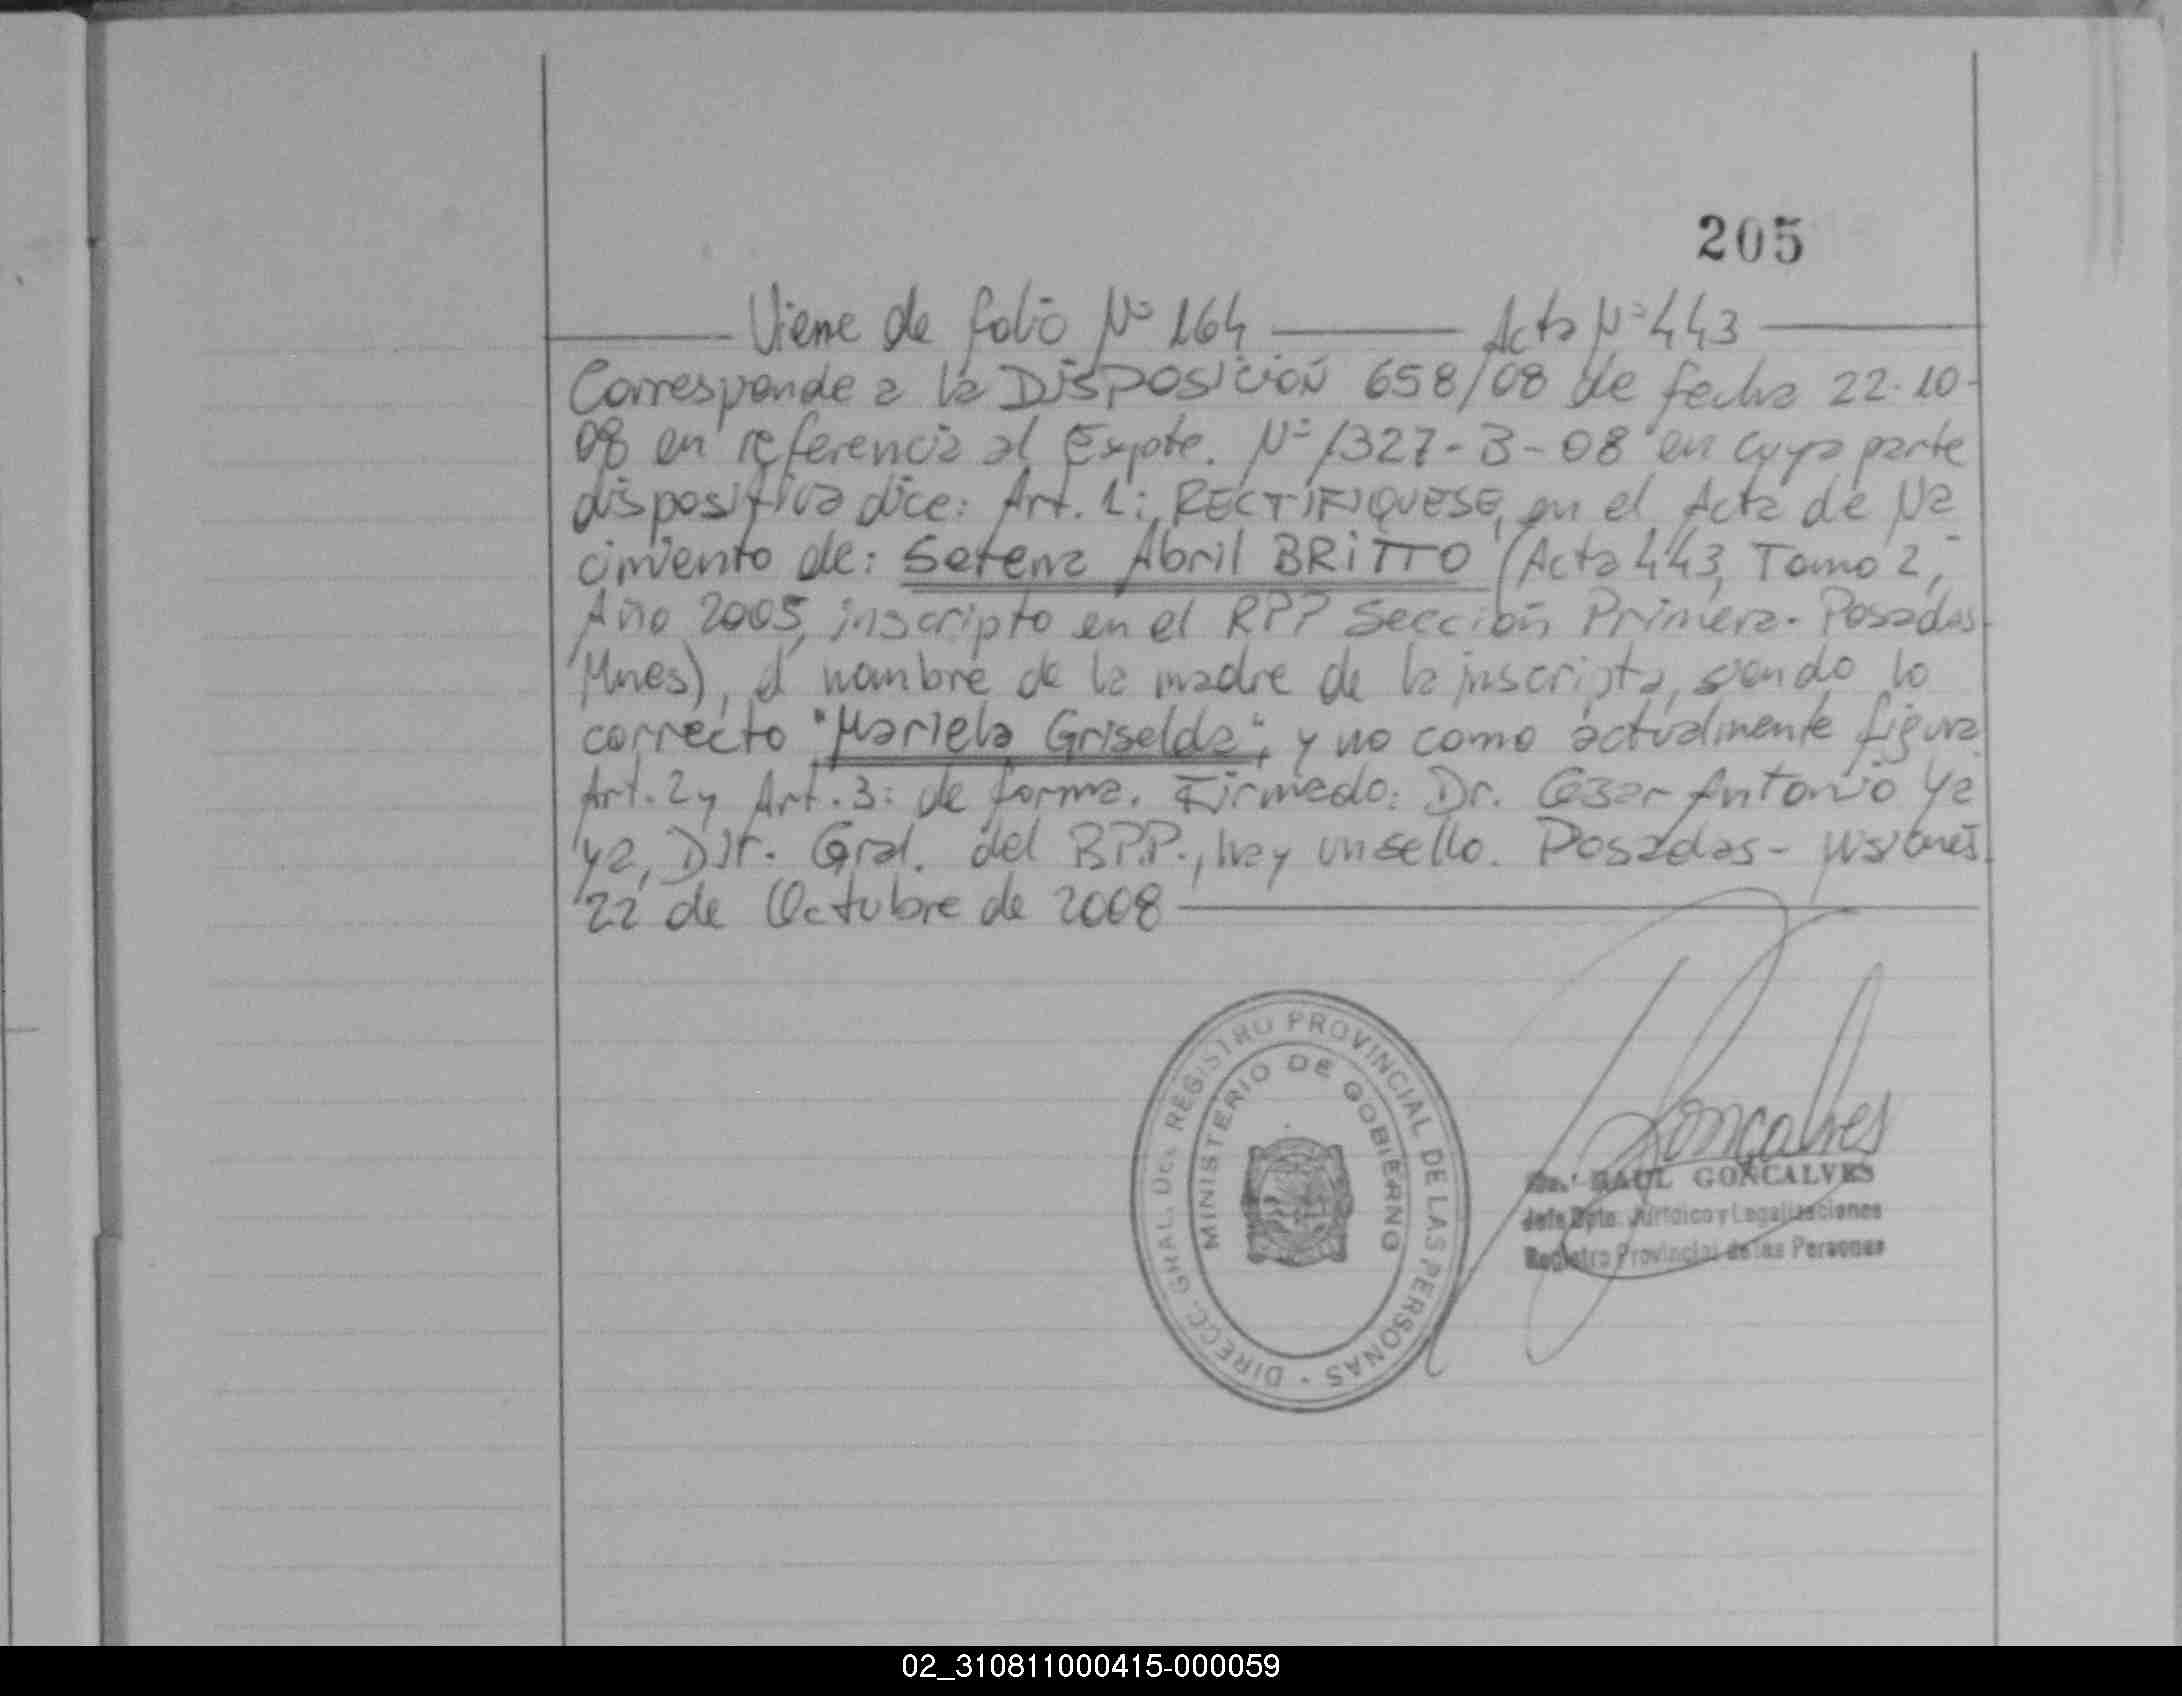 205
Viene de folio Nº 164 Acta Nº 443
Corresponde a la DISPOSICIÓN 658/08 de fecha 22-10-
08 en referencia al Expte. Nº 1327-B-08 en cuya parte
dispositiva dice: Art. 1: RECTIFIQUESE, en el Acta de Na
cimiento de: Serena Abril BRITTO (Acta 443, Tomo 2,
Año 2005, inscripto en el RPP Sección Primera- Posadas
Mnes), el nombre de la madre de la inscripta, siendo lo
correcto "Mariela Griselda", y no como actualmente figura.
Art. 2 y Art. 3: de forma. Firmado: Dr. César Antonio Ya
ya, Dir. Gral. del RPP., hay un sello. Posadas- Misiones
22 de Octubre de 2008
DIRECC. GRAL. DEL REGISTRO PROVINCIAL DE LAS PERSONAS
MINISTERIO DE GOBIERNO
Goncalves
RAUL GONCALVES
Jefe Dpto. Jurídico y Legalizaciones
Registro Provincial de las Personas
02_310811000415-000059